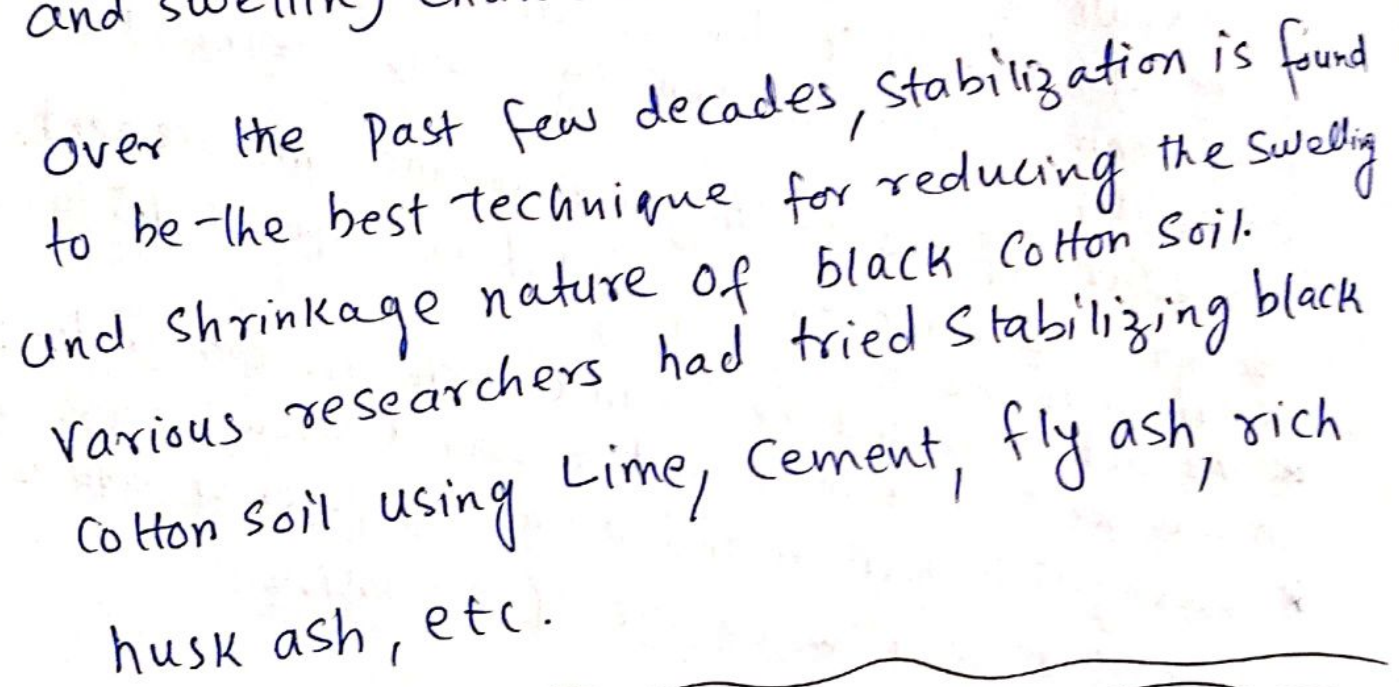 and swelling
over the Past few decades, Stabilization is found
to be the best technique for reducing the swellig
and Shrinkage nature of black Cotton Soil.
Various researchers had tried Stabilizing black
Cotton Soil using Lime, Cement, fly ash, rich
husk ash, etc.